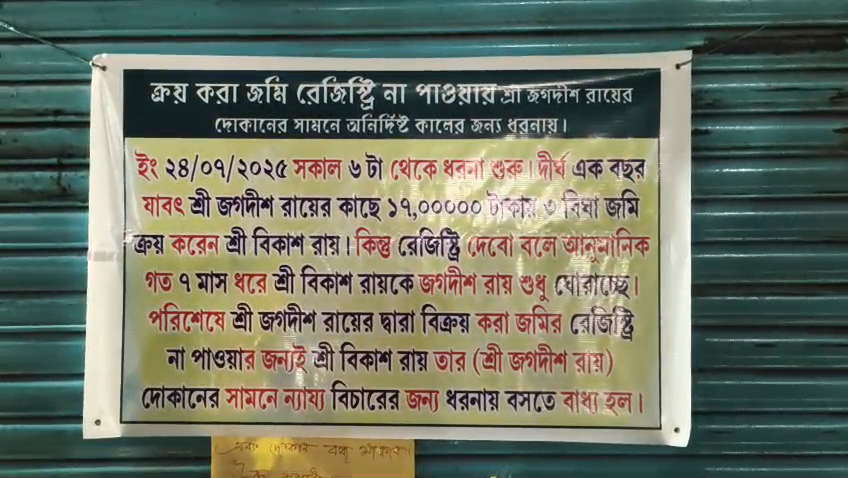 ক্রয় করা জমি রেজিস্ট্রি না পাওয়ায় শ্রী জগদীশ রায়ের
দোকানের সামনে অনির্দিষ্ট কালের জন্য ধরনায়।
ইং ২৪/০৭/২০২৫ সকাল ৬ টা থেকে ধরনা শুরু। দীর্ঘ এক বছর
যাবৎ শ্রী জগদীশ রায়ের কাছে ১৭,০০০০০ টাকায় ৩ বিঘা জমি
ক্রয় করেন শ্রী বিকাশ রায়। কিন্তু রেজিস্ট্রি দেবো বলে আনুমানিক
গত ৭ মাস ধরে শ্রী বিকাশ রায়কে জগদীশ রায় শুধু ঘোরাচ্ছে।
পরিশেষে শ্রী জগদীশ রায়ের দ্বারা বিক্রয় করা জমির রেজিস্ট্রি
না পাওয়ার জন্যই শ্রী বিকাশ রায় তার (শ্রী জগদীশ রায়)
দোকানের সামনে ন্যায্য বিচারের জন্য ধরনায় বসতে বাধ্য হল।
দোকান বন্ধ